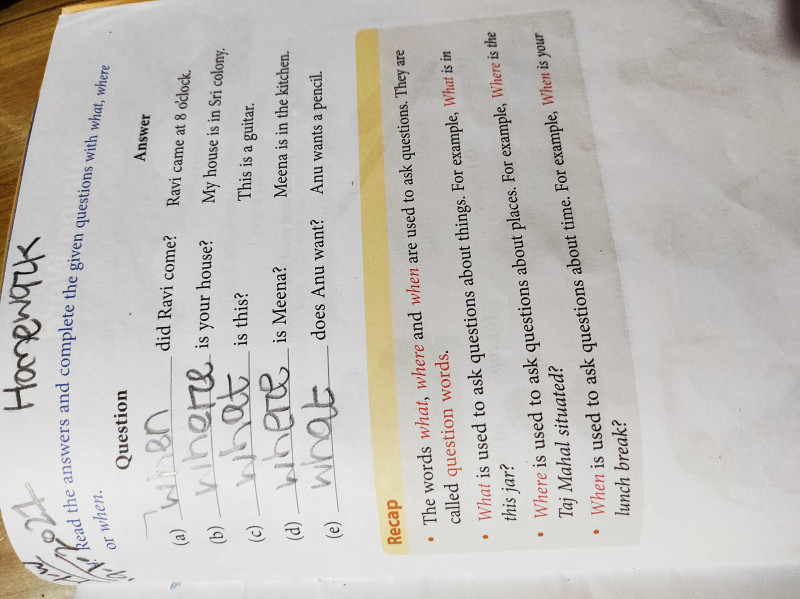 Homework
Read the answers and complete the given questions with what, where
or when.
Question Answer
(a) when did Ravi come? Ravi came at 8 o'clock.
(b) where is your house? My house is in Sri colony.
(c) what is this? This is a guitar.
(d) where is Meena? Meena is in the kitchen.
(e) what does Anu want? Anu wants a pencil.
Recap
• The words what, where and when are used to ask questions. They are
called question words.
• What is used to ask questions about things. For example, What is in
this jar?
• Where is used to ask questions about places. For example, Where is the
Taj Mahal situated?
• When is used to ask questions about time. For example, When is your
lunch break?